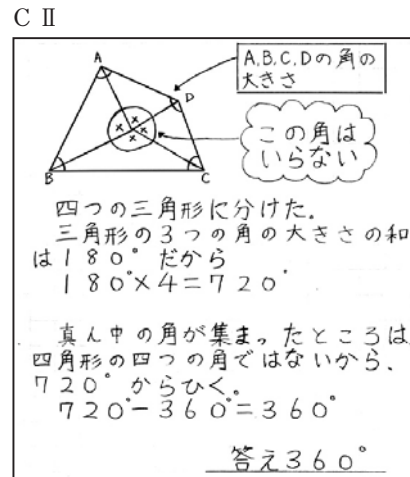 C Ⅱ
A
D
B
C
× × × ×
A,B,C,Dの角の
大きさ
この角は
いらない
四つの三角形に分けた。
三角形の3つの角の大きさの和
は180°だから
180°×4=720°
真ん中の角が集まったところは
四角形の四つの角ではないから、
720°からひく。
720°-360°=360°
答え360°